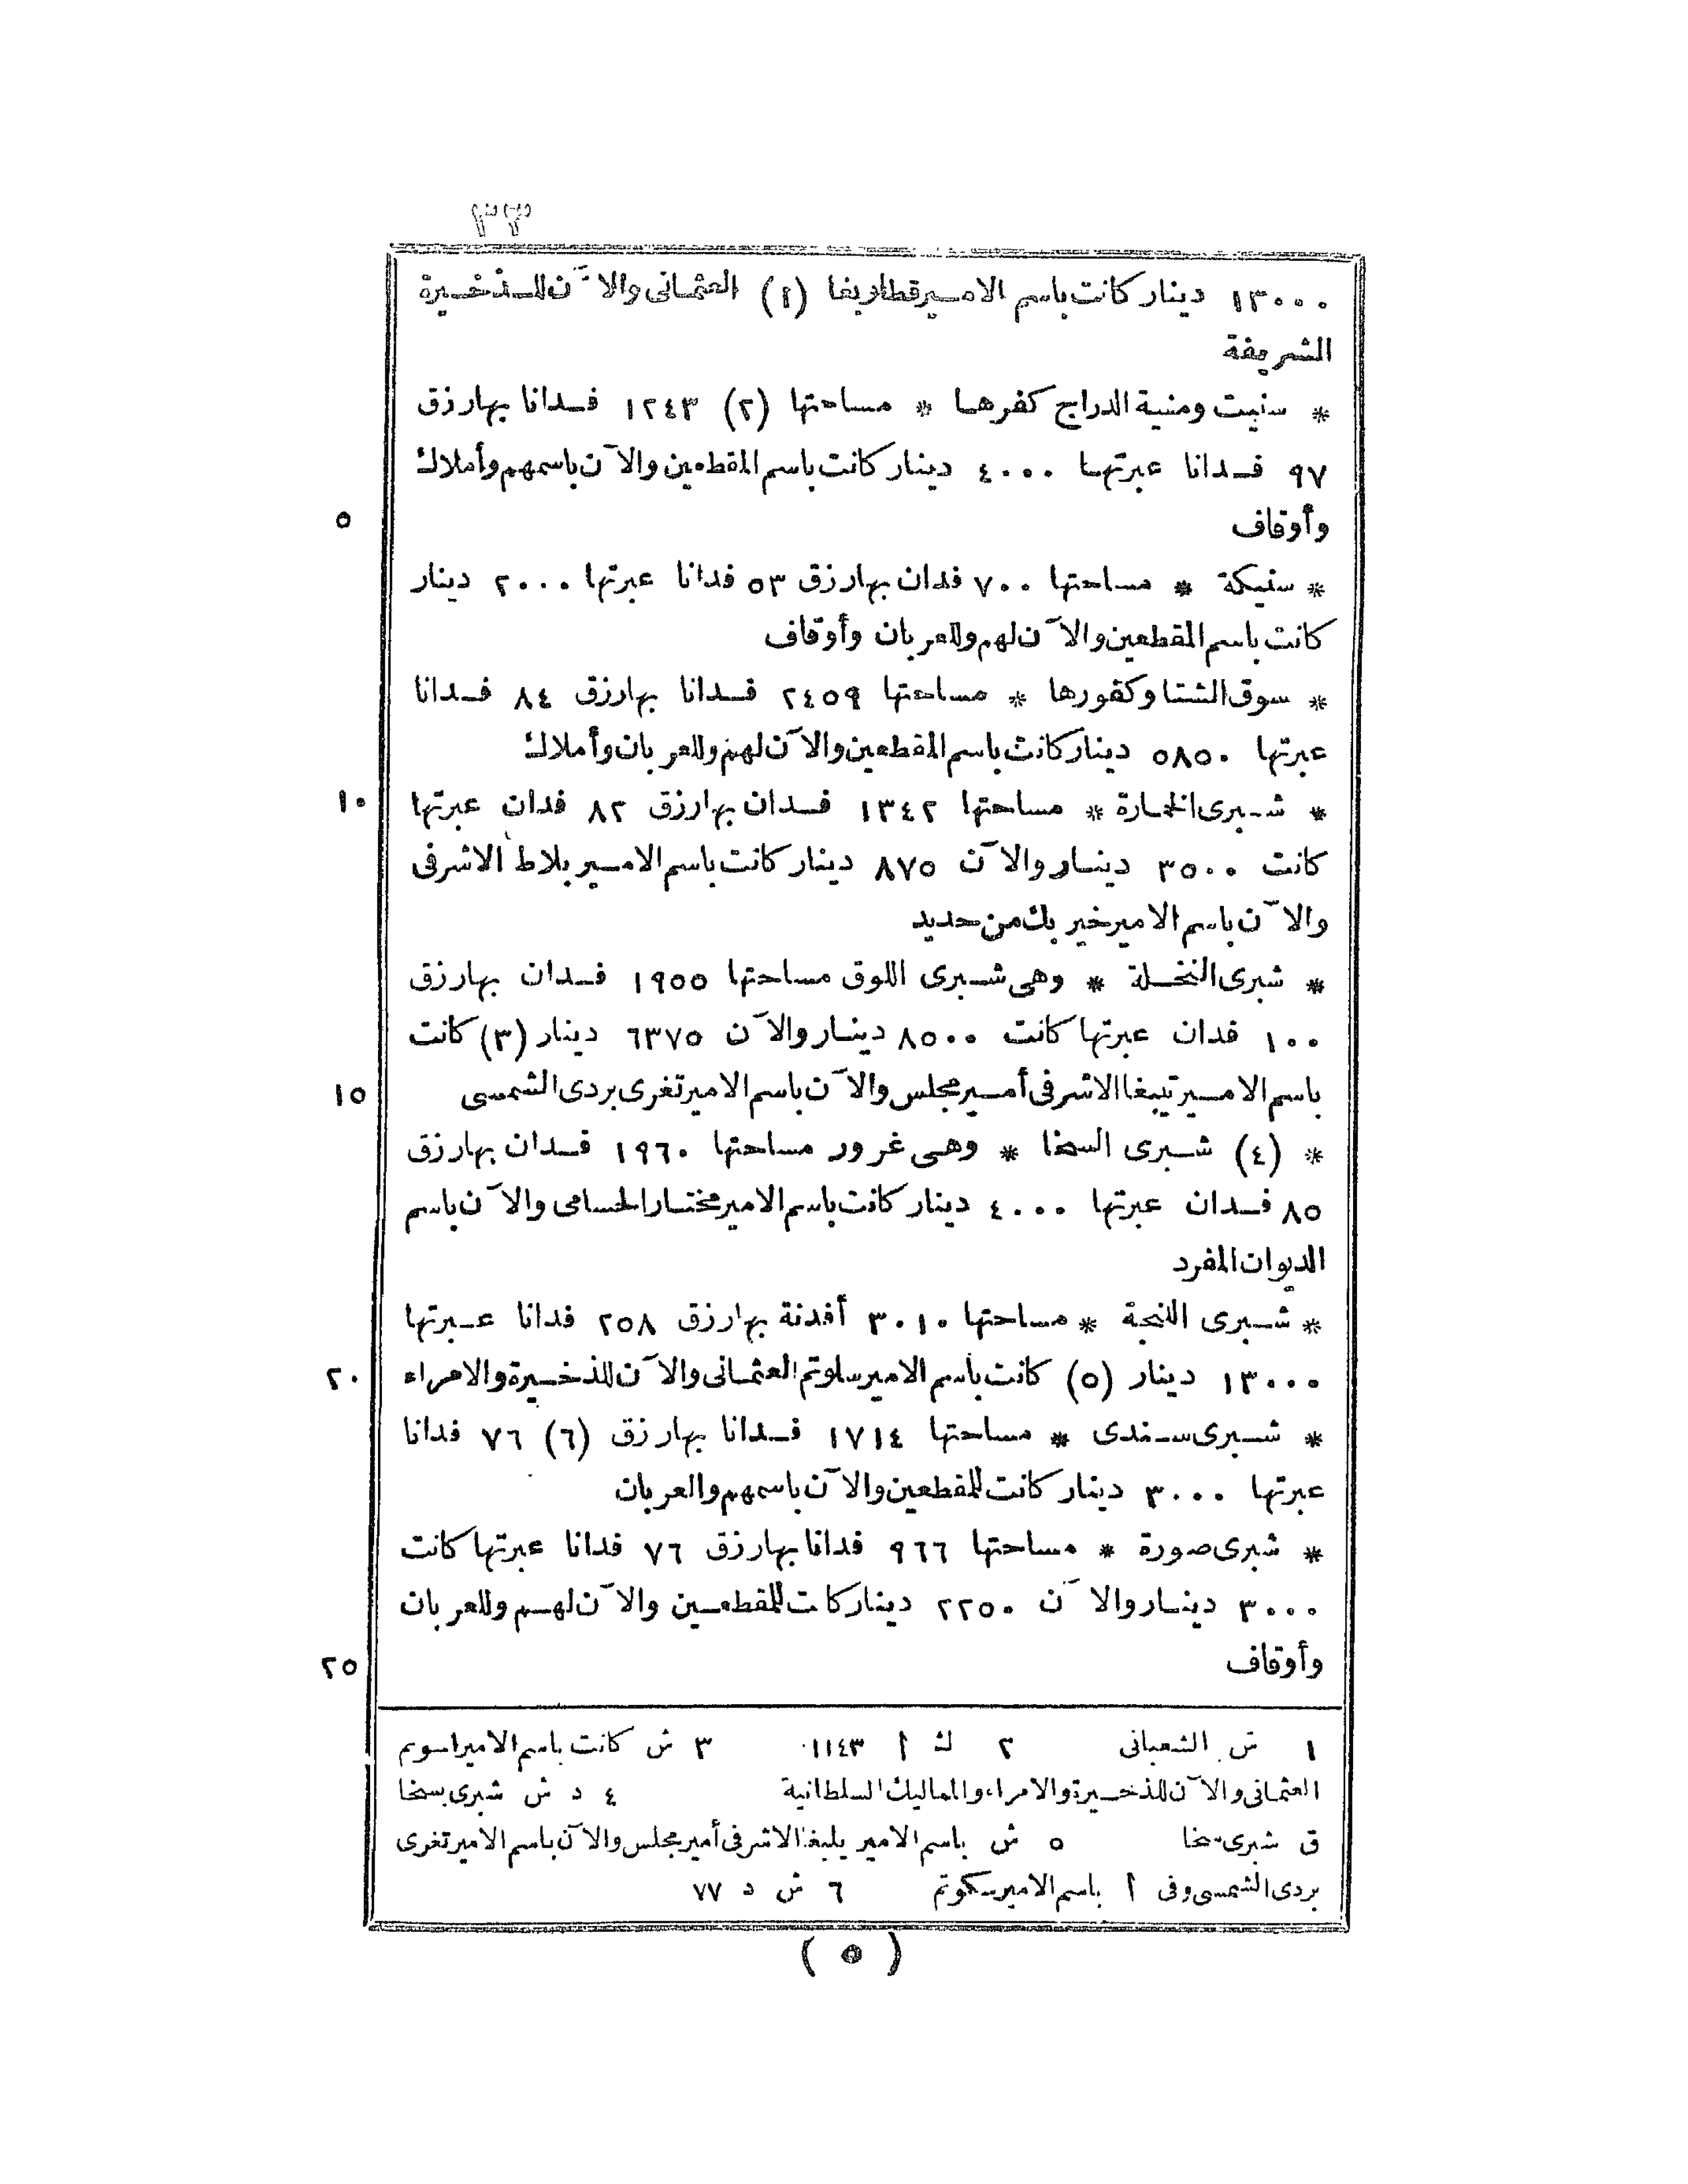 ٣٣
١٣٠٠٠ دينار كانت باسم الامير قطلوبغا (١) العثمانى والآن للذخيرة
الشريفة
* سنيت ومنية الدراج كفرها * مساحتها (٢) ١٢٤٣ فدانا بها رزق
٩٧ فدانا عبرتها ٤٠٠٠ دينار كانت باسم المقطعين والآن باسمهم وأملاك
٥ وأوقاف
* سنيكة * مساحتها ٧٠٠ فدان بها رزق ٥٣ فدانا عبرتها ٢٠٠٠ دينار
كانت باسم المقطعين والآن لهم وللعربان وأوقاف
* سوق الشتا وكفورها * مساحتها ٢٤٥٩ فدانا بها رزق ٨٤ فدانا
عبرتها ٥٨٥٠ دينار كانت باسم المقطعين والآن لهم وللعربان وأملاك
١٠ * شبرى الخمارة * مساحتها ١٣٤٢ فدان بها رزق ٨٢ فدان عبرتها
كانت ٣٥٠٠ دينار والآن ٨٧٥ دينار كانت باسم الامير بلاط الاشرفى
والآن باسم الامير خير بك من حديد
* شبرى النخلة * وهى شبرى اللوق مساحتها ١٩٥٥ فدان بها رزق
١٠٠ فدان عبرتها كانت ٨٥٠٠ دينار والآن ٦٣٧٥ دينار (٣) كانت
١٥ باسم الامير تيبغا الاشرفى أمير مجلس والآن باسم الامير تغرى بردى الشمسى
* (٤) شبرى السخا * وهى غرور مساحتها ١٩٦٠ فدان بها رزق
٨٥ فدان عبرتها ٤٠٠٠ دينار كانت باسم الامير مختار الحسامى والآن باسم
الديوان المفرد
* شبرى النجة * مساحتها ٣٠١٠ أفدنة بها رزق ٢٥٨ فدانا عبرتها
٢٠ ١٣٠٠٠ دينار (٥) كانت باسم الامير سلوتم العثمانى والآن للذخيرة والامراء
* شبرى سندى * مساحتها ١٧١٤ فدانا بها رزق (٦) ٧٦ فدانا
عبرتها ٣٠٠٠ دينار كانت للمقطعين والآن باسمهم والعربان
* شبرى صورة * مساحتها ٩٦٦ فدانا بها رزق ٧٦ فدانا عبرتها كانت
٣٠٠٠ دينار والآن ٢٢٥٠ دينار كانت للمقطعين والآن لهم وللعربان
٢٥ وأوقاف
١ ش الشعبانى ٢ ك أ ١١٤٣ ٣ ش كانت باسم الامير اسوتم
العثمانى والآن للذخيرة والامراء والمماليك السلطانية ٤ د ش شبرى بسخا
ق شبرى سخا ٥ ش باسم الامير يلبغا الاشرفى أمير مجلس والآن باسم الامير تغرى
بردى الشمسى وفى أ باسم الامير سكوتم ٦ ش د ٧٧
(٥)